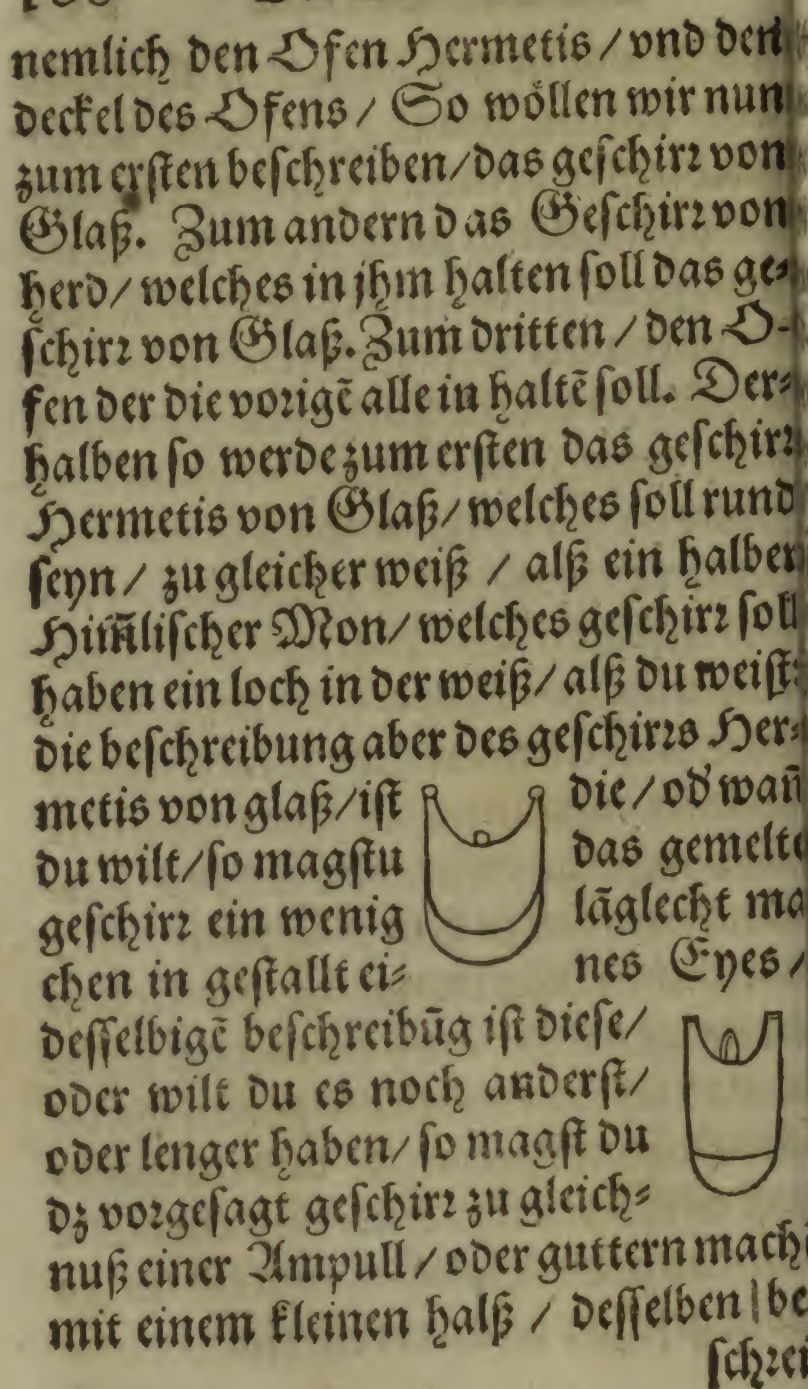 nemlich den Ofen Hermetis / vnd den
deckel des Ofens / So wöllen wir nun
zum ersten beschreiben / das geschirr von
Glaß. Zum andern das Geschirr von
herd / welches in jhm halten soll das ge⸗
schirr von Glaß. Zum dritten / den O-
fen der die vorigē alle in haltē soll. Der⸗
halben so werde zum ersten das geschirr
Hermetis von Glaß / welches soll rund
seyn / zu gleicher weiß / alß ein halber
Him̃lischer Mon / welches geschirr soll
haben ein loch in der weiß / alß du weist:
die beschreibung aber des geschirrs Her⸗
metis von glaß / ist die / od wañ
du wilt / so magstu das gemelte
geschirr ein wenig lāglecht ma
chen in gestallt ei⸗ nes Eyes /
desselbigē beschreibūg ist diese /
oder wilt du es noch anderst /
oder lenger haben / so magst du
dz vorgesagt geschirr zu gleich⸗
nuß einer Ampull / oder guttern mach
mit einem kleinen halß / desselben be
schrei